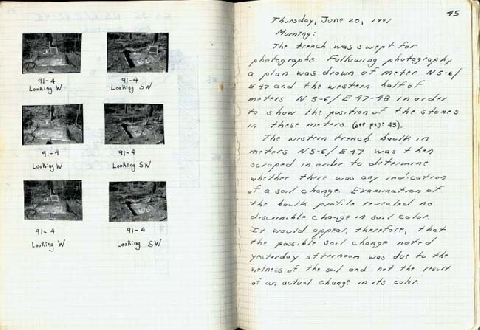 91-4
Looking W
91-4
Looking SW
91-4
Looking W
91-4
Looking SW
91-4
Looking W
91-4
Looking SW
45
Thursday, June 1991
Morning:
The trench was swept for
photographs. Following photography
a plan was drawn of meter N5-6/
E47 and the western half of
meters N 5-6/E47-48 in order
to show the position of the stones
in these meters (see page 43).
The western trench baulk in
meters N5-6/E47 was then
scraped in order to determine
whether there was any indication
of a soil change. Examination of
the baulk profile revealed no
discernable change in soil color.
It would appear, therefore, that
the possible soil change noted
yesterday afternoon was due to the
wetness of the soil and not the result
of an actual change in its color.